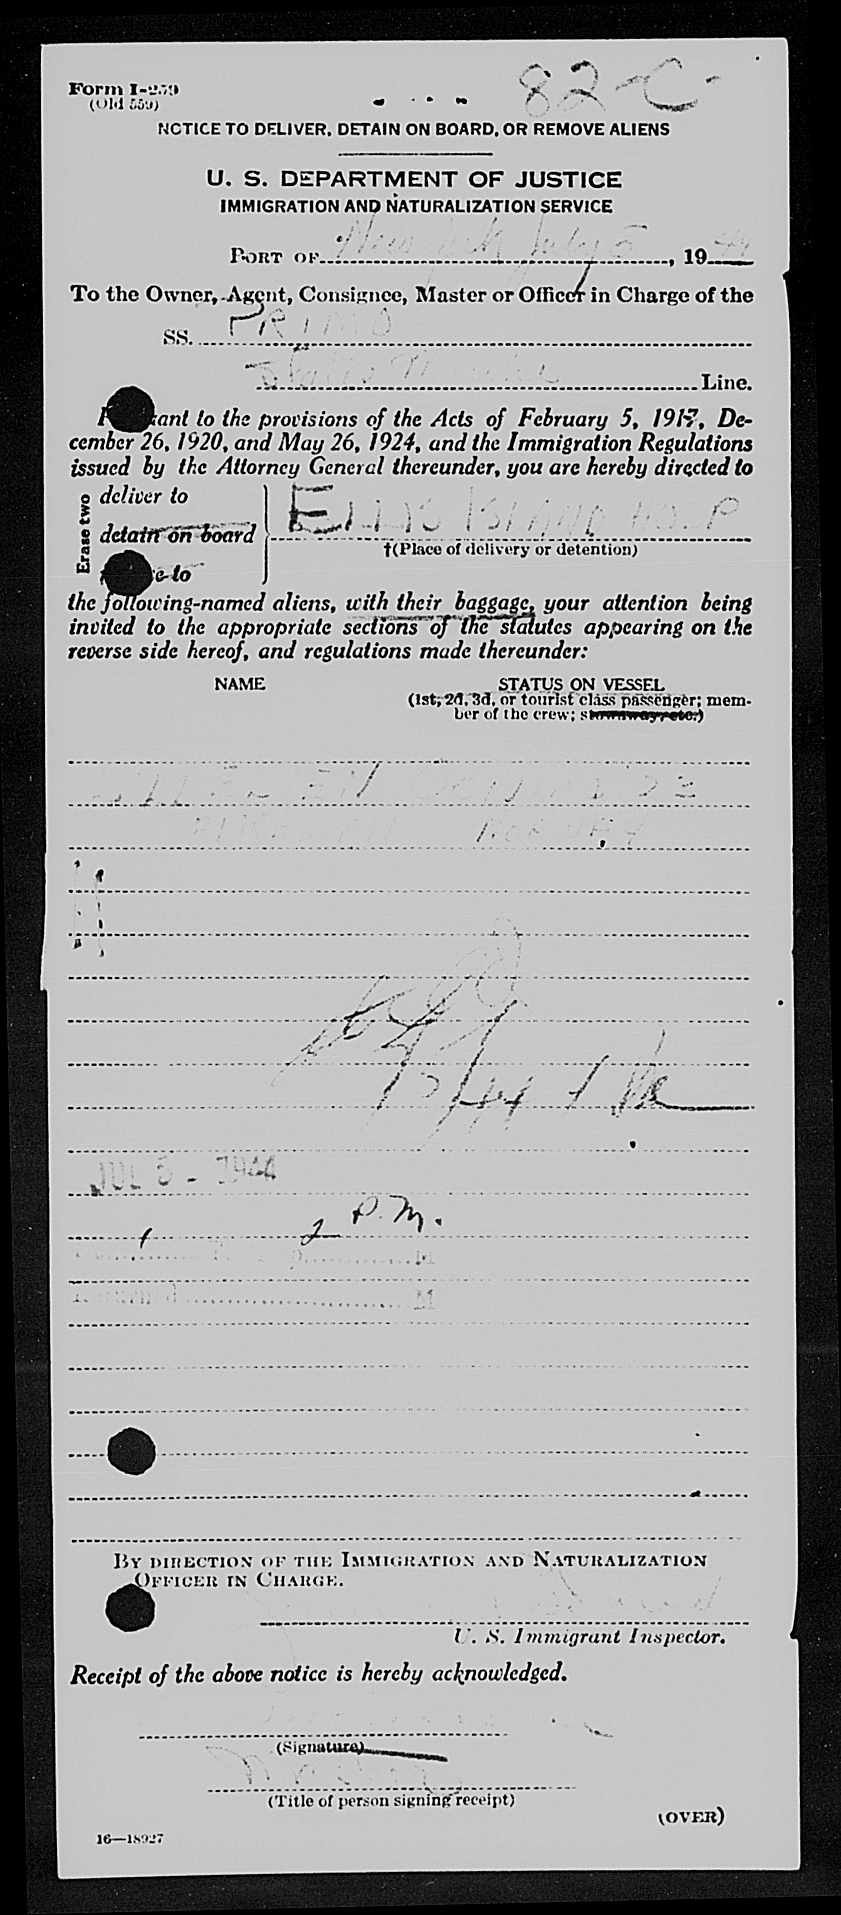 Form I-259
(Old 559)
82-C-
NOTICE TO DELIVER, DETAIN ON BOARD, OR REMOVE ALIENS
U. S. DEPARTMENT OF JUSTICE
IMMIGRATION AND NATURALIZATION SERVICE
PORT OF New York July 5, 1944
To the Owner, Agent, Consignee, Master or Officer in Charge of the
SS. PRIMO
Line.
ant to the provisions of the Acts of February 5, 1917, De-
cember 26, 1920, and May 26, 1924, and the Immigration Regulations
issued by the Attorney General thereunder, you are hereby directed to
Erase two
deliver to
detain on board
e to
ELLIS ISLAND HOSP
†(Place of delivery or detention)
the following-named aliens, with their baggage, your attention being
invited to the appropriate sections of the statutes appearing on the
reverse side hereof, and regulations made thereunder:
NAME STATUS ON VESSEL
(1st, 2d, 3d, or tourist class passenger; mem-
ber of the crew; stowaway, etc.)
NORWAY
5/44
JUL 5 - 1944
2 P.M.
M
M
BY DIRECTION OF THE IMMIGRATION AND NATURALIZATION
OFFICER IN CHARGE.
U. S. Immigrant Inspector.
Receipt of the above notice is hereby acknowledged.
(Signature)
(Title of person signing receipt)
(OVER)
16—18927